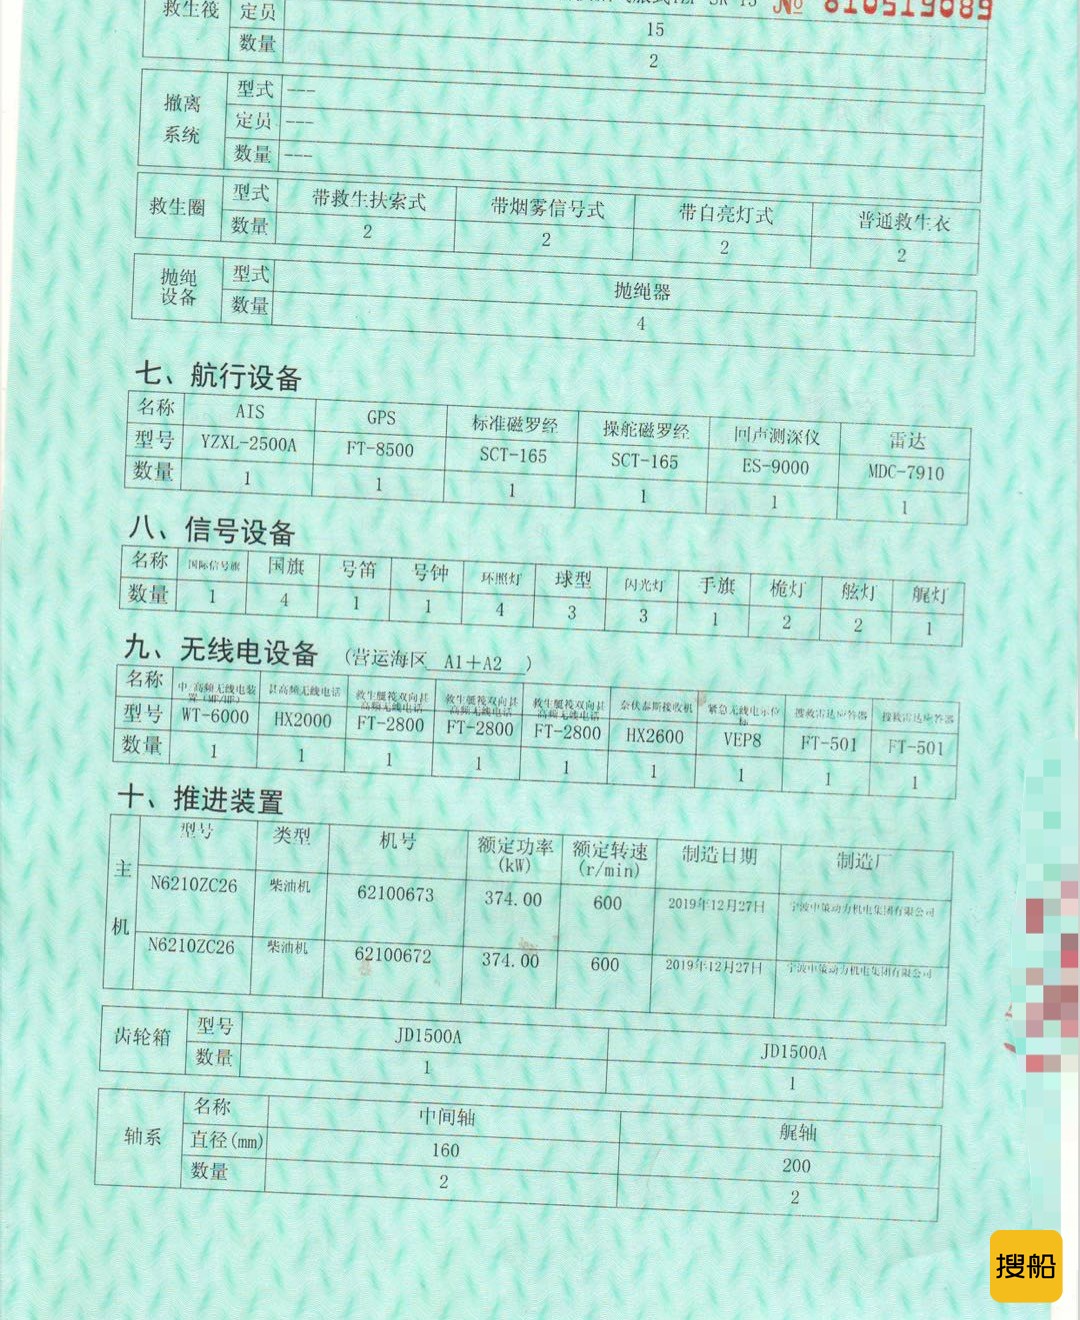 救生筏 定员 15
数量 2
№ 810519089
撤离系统 型式 ---
定员 ---
数量 ---
救生圈 型式 带救生扶索式 带烟雾信号式 带自亮灯式 普通救生衣
数量 2 2 2 2
抛绳设备 型式 抛绳器
数量 4
七、航行设备
名称 AIS GPS 标准磁罗经 操舵磁罗经 回声测深仪 雷达
型号 YZXL-2500A FT-8500 SCT-165 SCT-165 ES-9000 MDC-7910
数量 1 1 1 1 1 1
八、信号设备
名称 国际信号旗 国旗 号笛 号钟 环照灯 球型 闪光灯 手旗 桅灯 舷灯 艉灯
数量 1 4 1 1 4 3 3 1 2 2 1
九、无线电设备 (营运海区 A1+A2 )
名称 中/高频无线电装置 (MF/HF) 甚高频无线电话 救生艇筏双向甚高频无线电话 救生艇筏双向甚高频无线电话 救生艇筏双向甚高频无线电话 奈伏泰斯接收机 紧急无线电示位标 搜救雷达应答器 搜救雷达应答器
型号 WT-6000 HX2000 FT-2800 FT-2800 FT-2800 HX2600 VEP8 FT-501 FT-501
数量 1 1 1 1 1 1 1 1 1
十、推进装置
主机 型号 类型 机号 额定功率(kW) 额定转速(r/min) 制造日期 制造厂
N6210ZC26 柴油机 62100673 374.00 600 2019年12月27日 宁波中策动力机电集团有限公司
N6210ZC26 柴油机 62100672 374.00 600 2019年12月27日 宁波中策动力机电集团有限公司
齿轮箱 型号 JD1500A JD1500A
数量 1 1
轴系 名称 中间轴 艉轴
直径(mm) 160 200
数量 2 2
搜船